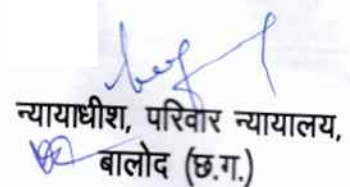 न्यायाधीश, परिवार न्यायालय,
बालोद (छ.ग.)